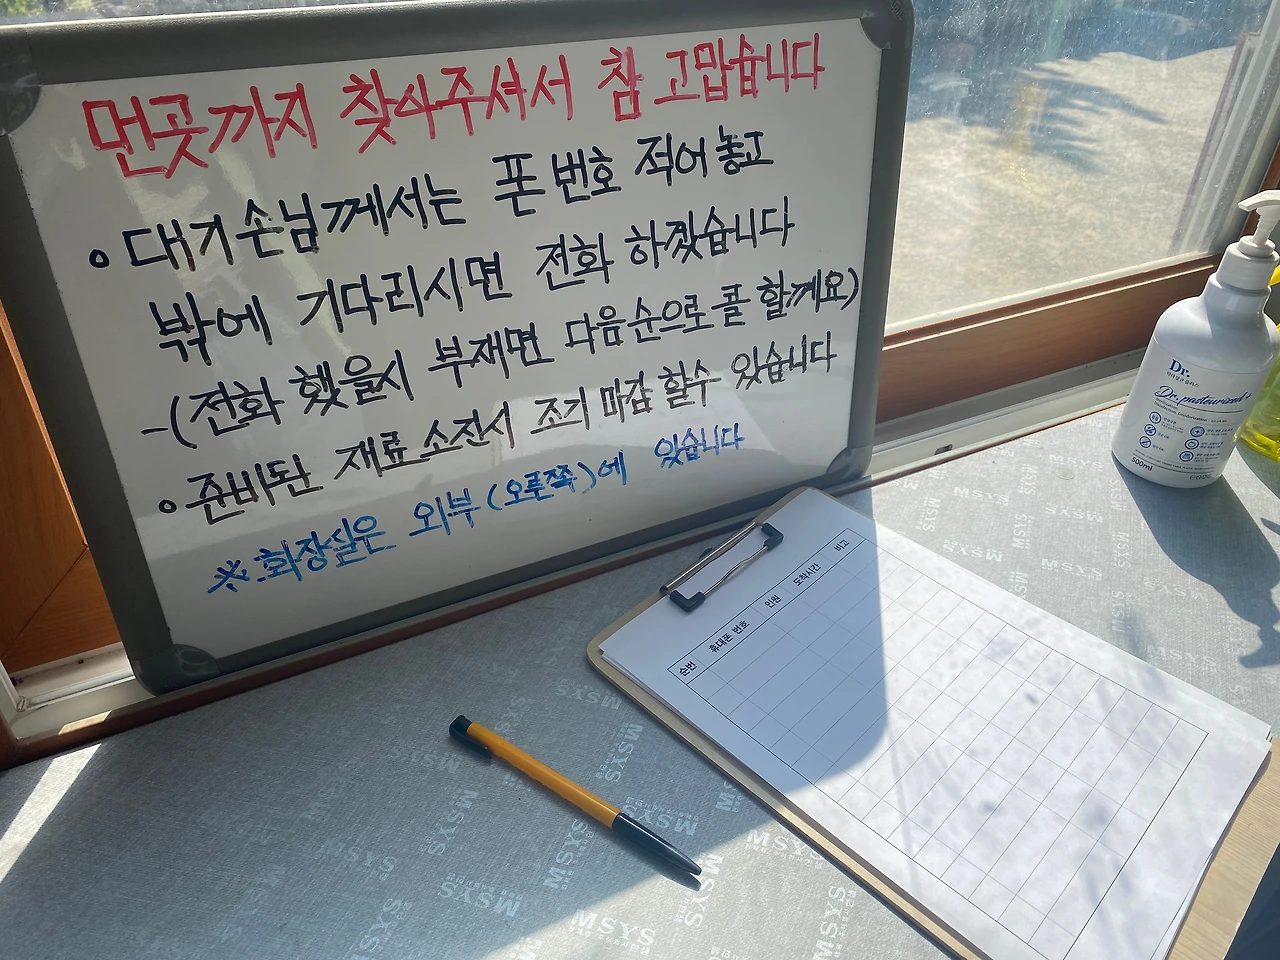 먼곳까지 찾아주셔서 참 고맙습니다
∘ 대기손님께서는 폰번호 적어놓고
밖에 기다리시면 전화 하겠습니다
-(전화 했을시 부재면 다음순으로 콜 할께요)
∘ 준비된 재료 소진시 조기마감 할수 있습니다
※화장실은 외부(오른쪽)에 있습니다
순번 휴대폰 번호 인원 도착시간 비고
Dr.
Dr. pasteurized+
500ml
MSYS